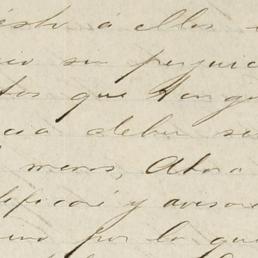 esto á ellos
sin perjuic
tos que tenga
cia deber se
menos, Ahora
tificaré y avisaré
uno por lo que